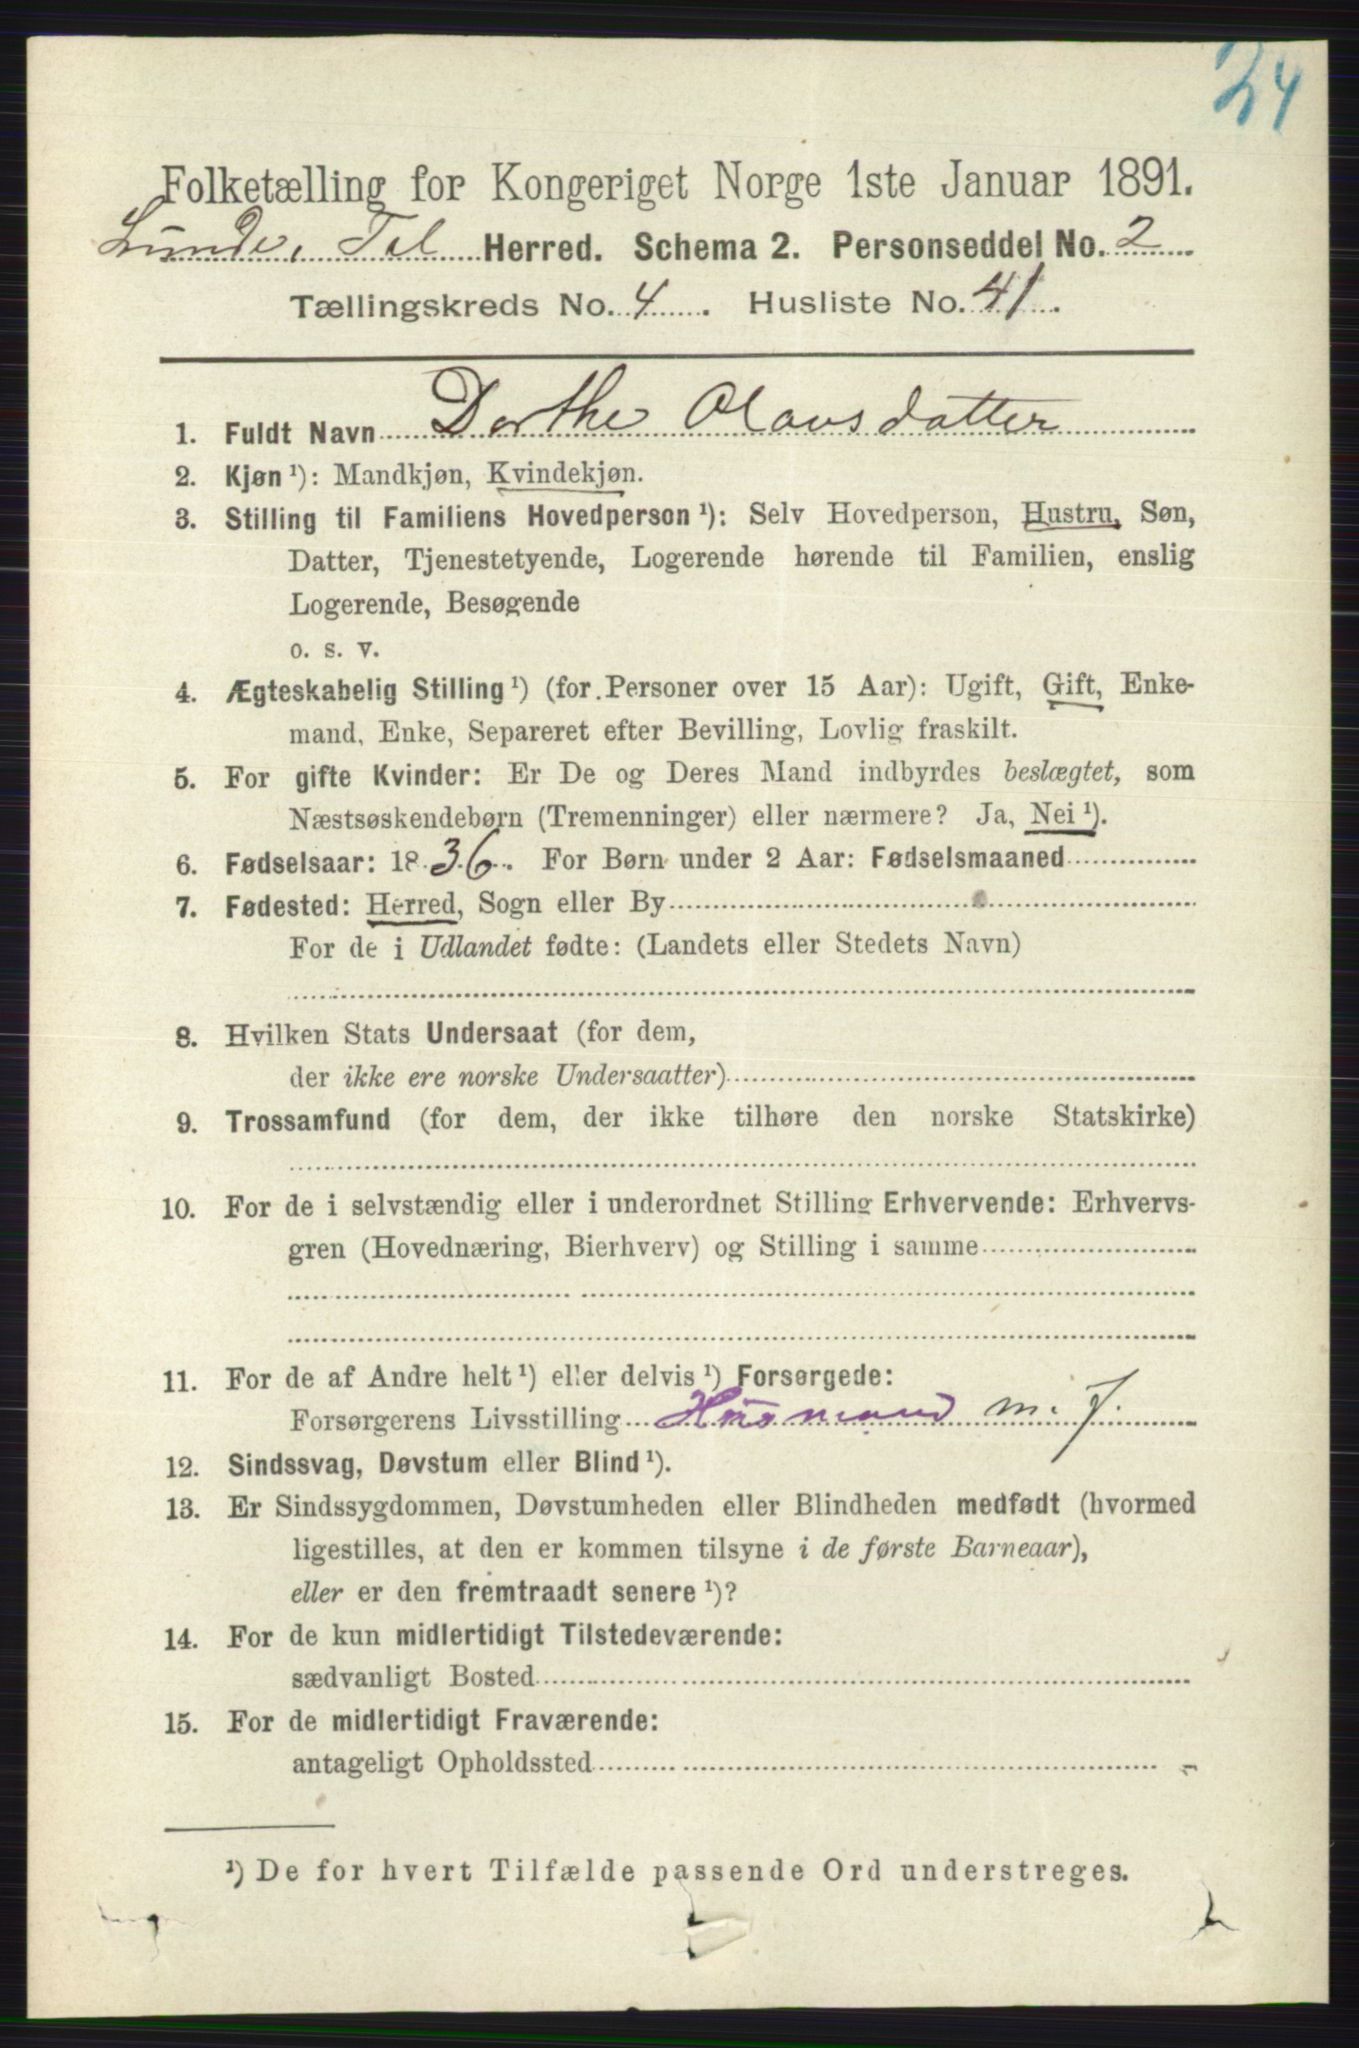 24
Folketælling for Kongeriget Norge 1ste Januar 1891.
Lunde, Tel Herred. Schema 2. Personseddel No. 2
Tællingskreds No. 4. Husliste No. 41.
1. Fuldt Navn Dorthe Olavsdatter
2. Kjøn ¹): Mandkjøn, Kvindekjøn.
3. Stilling til Familiens Hovedperson ¹): Selv Hovedperson, Hustru, Søn,
Datter, Tjenestetyende, Logerende hørende til Familien, enslig
Logerende, Besøgende
o. s. v.
4. Ægteskabelig Stilling ¹) (for Personer over 15 Aar): Ugift, Gift, Enke-
mand, Enke, Separeret efter Bevilling, Lovlig fraskilt.
5. For gifte Kvinder: Er De og Deres Mand indbyrdes beslægtet, som
Næstsøskendebørn (Tremenninger) eller nærmere? Ja, Nei ¹).
6. Fødselsaar: 1836. For Børn under 2 Aar: Fødselsmaaned
7. Fødested: Herred, Sogn eller By
For de i Udlandet fødte: (Landets eller Stedets Navn)
8. Hvilken Stats Undersaat (for dem,
der ikke ere norske Undersaatter)
9. Trossamfund (for dem, der ikke tilhøre den norske Statskirke)
10. For de i selvstændig eller i underordnet Stilling Erhvervende: Erhvervs-
gren (Hovednæring, Bierhverv) og Stilling i samme
11. For de af Andre helt ¹) eller delvis ¹) Forsørgede:
Forsørgerens Livsstilling Husmand m. J.
12. Sindssvag, Døvstum eller Blind ¹).
13. Er Sindssygdommen, Døvstumheden eller Blindheden medfødt (hvormed
ligestilles, at den er kommen tilsyne i de første Barneaar),
eller er den fremtraadt senere ¹)?
14. For de kun midlertidigt Tilstedeværende:
sædvanligt Bosted
15. For de midlertidigt Fraværende:
antageligt Opholdssted
¹) De for hvert Tilfælde passende Ord understreges.